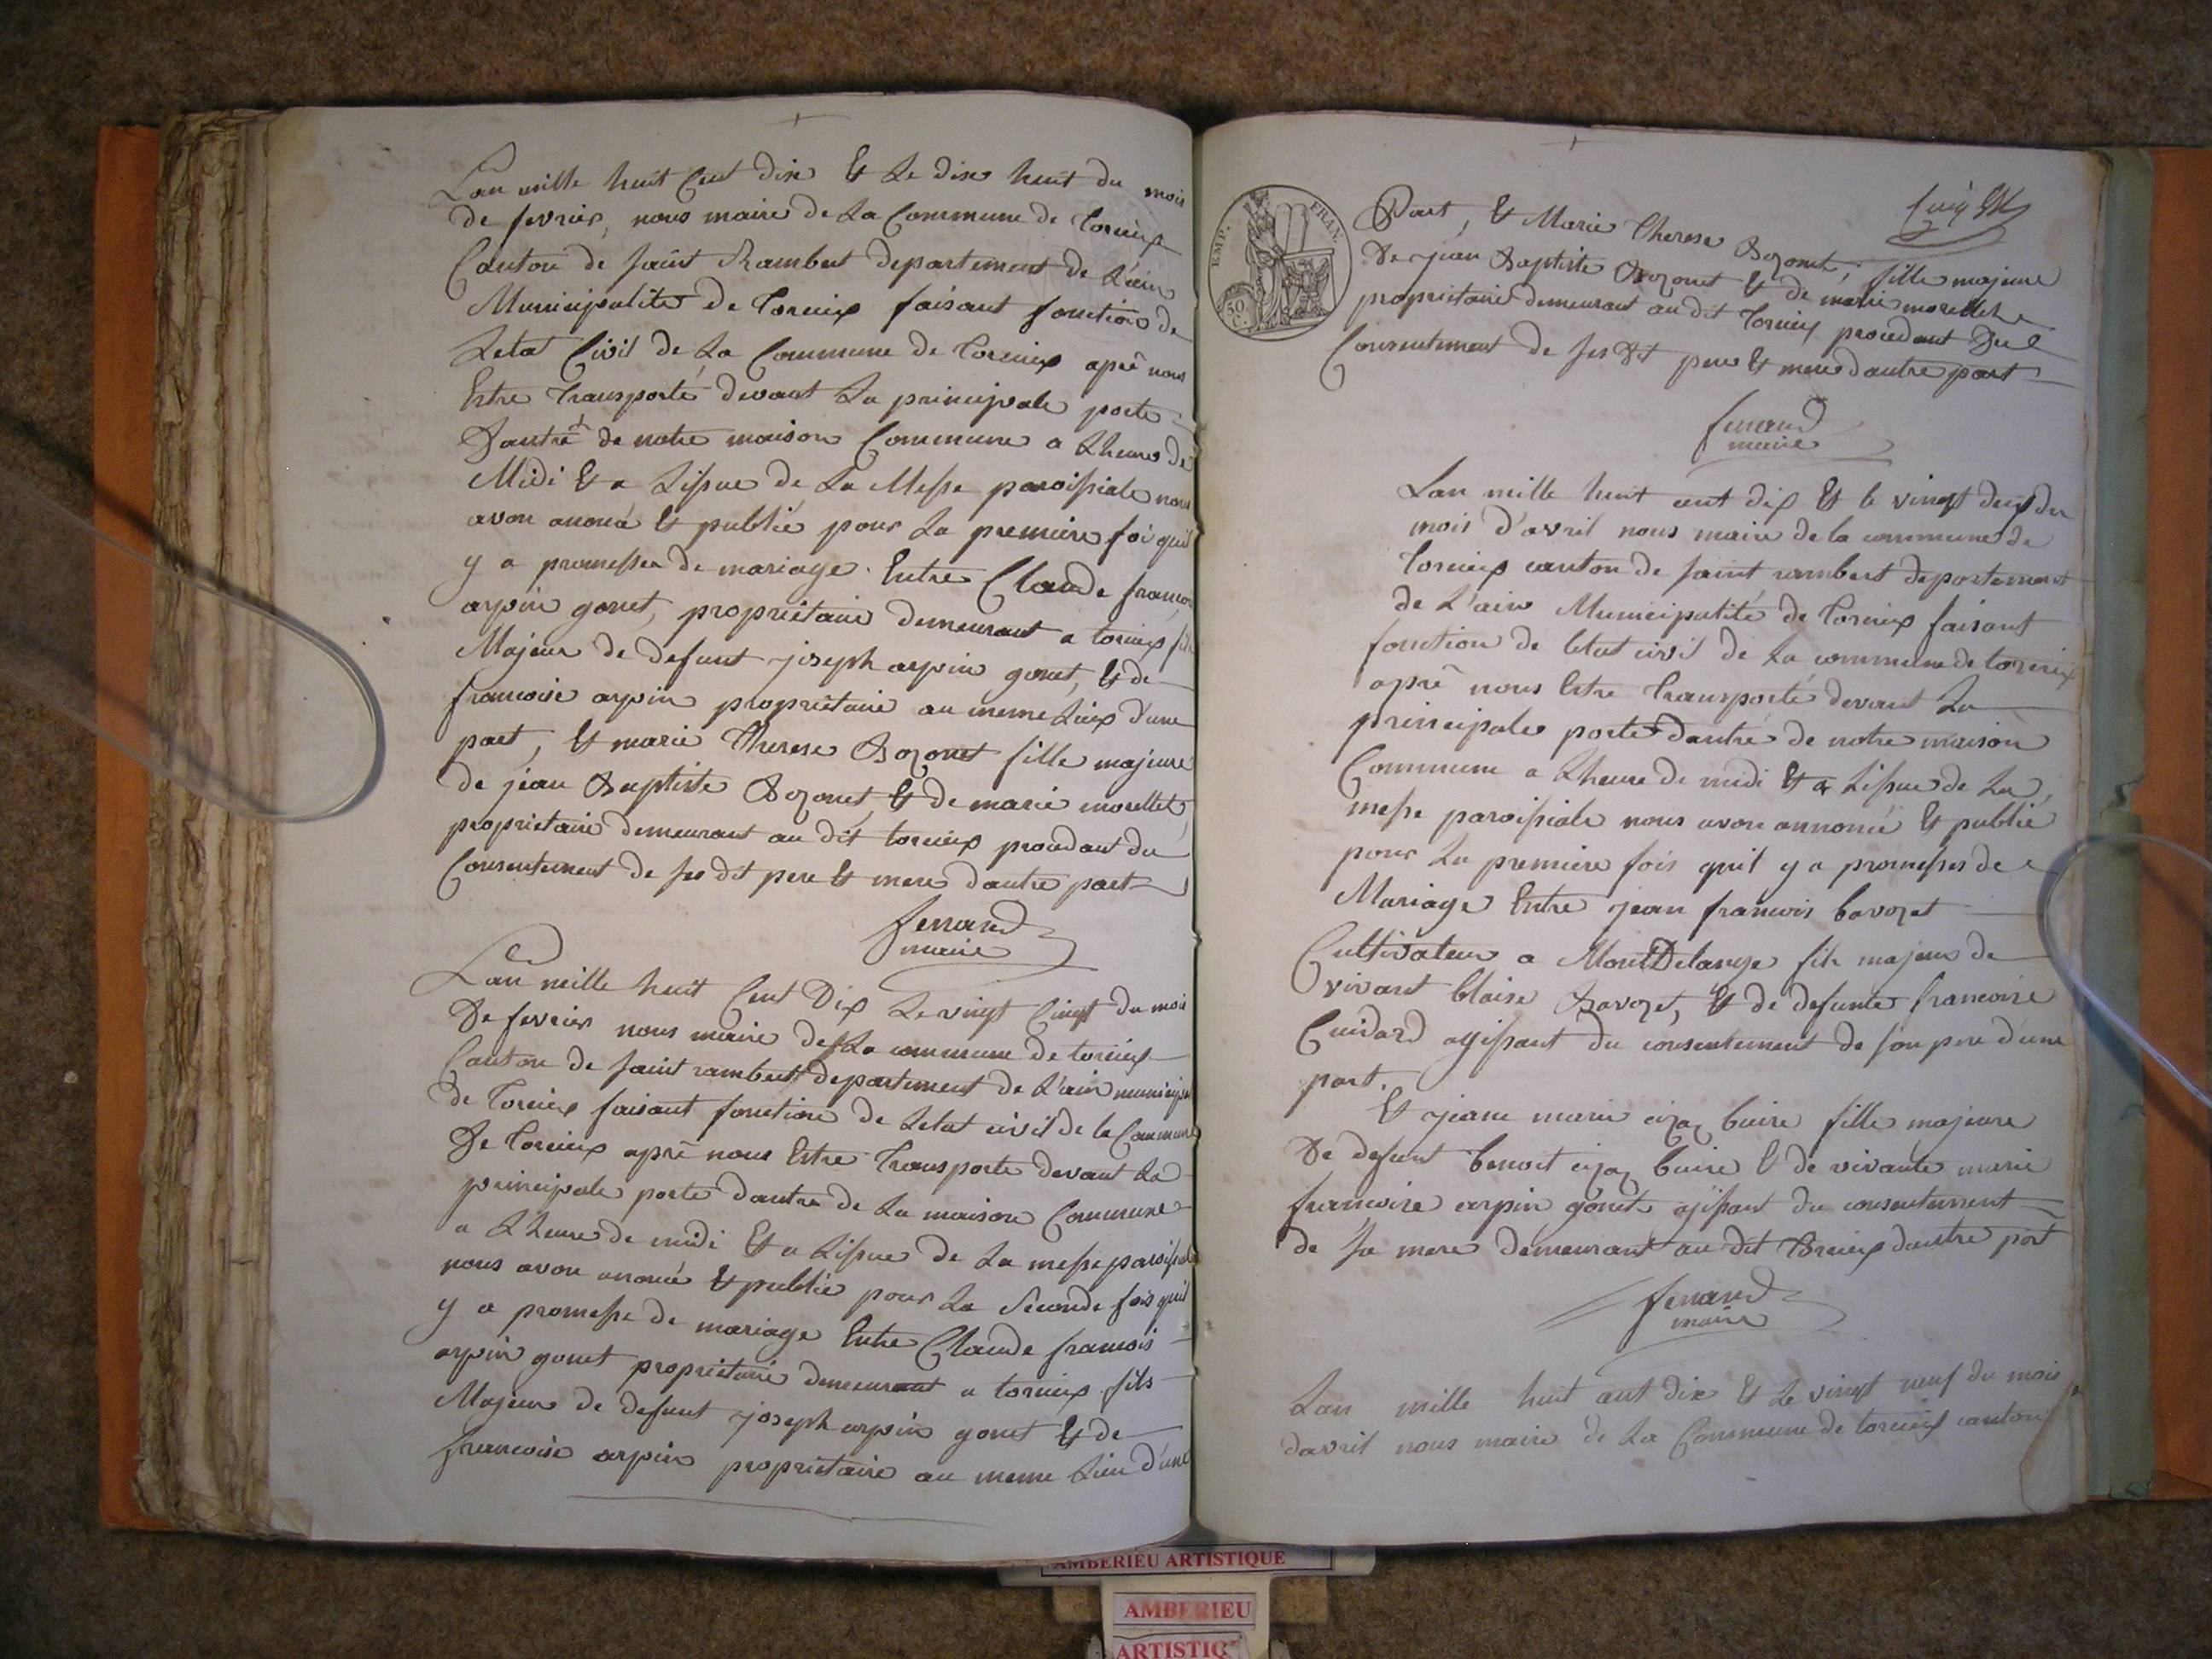 Lan mille huit Cent dix & Le dix huit du mois
de fevrier, nous maire de La Commune de Torcieux
Canton de saint Rambert departement de L'ain
Municipalite de Torcieux faisant fonction de
Letat Civil de La Commune de Torcieux aprê nous
Estre Transporté devant La principale porte
Dantré de notre maison Commune a Lheure de
Midi & a Lissue de La Messe paroissiale nous
avon anoncé & publié pour La premiere foi quil
y a promesse de mariage. Entre Claude francois
arpin gonet, propriétaire demeurant a torcieux fils
Majeur de defunt joseph arpin gonet, & de
francoise arpin propriétaire au meme Lieux d'une
part, & marie Therese Bozonet fille majeure
de jean Baptiste Bozonet, & de marie morellet,
proprietaire demeurant au dit torcieux procedant du
Consentement de ses dit pere & mere dautre part
ferrand
maire
Lan mille huit Cent Dix Le vingt Cinq du mois
De fevrier nous maire de La commune de torcieux
Canton de saint rambert departement de L'ain municipal
de Torcieux faisant fonction de Letat civil de la Commune
De Torcieux aprê nous Estre Transporte devant La
principale porte dantre de La maison Commune
a Lheure de midi & a Lissue de La messe paroissiale
nous avon anoncé & publié pour La Seconde fois quil
y a promesse de mariage Entre Claude francois
arpin gonet propriétaire demeurant a torcieux fils
Majeur de defunt joseph arpin gonet & de
francoise arpin propriétaire au meme Lieu d'une
EMP. FRAN.
50 C.
Part, & Marie Therese Bozonet, fille majeure
De jean Baptiste Bozonet & de marie morellet
proprietaire demeurant au dit Torcieux procedant Du
Consentement de ses dit pere & mere dautre part
ferrand
maire
Lan mille huit cent dix & le vingt deux du
mois d'avril nous maire de la commune de
Torcieux canton de saint rambert departement
de L'ain Municipalité de Torcieux faisant
fonction de letat civil de La commune de torcieux
aprê nous Estre Transporté devant La
principale porte Dantré de notre maison
Commune a Lheure de midi & a Lissue de La
messe paroissiale nous avon annoncé & publié
pour La premiere fois quil y a promesses de
Mariage Entre jean francois bavozet
Cultivateur a Mont Delange fils majeur de
vivant blaise Bavozet, & de defunte francoise
Guidard agissant du consentement de son pere d'une
part.
& jeane marie cizaz buire fille majeure
De defunt benoit cizaz buire & de vivante marie
francoise arpin gonet agissant du consentement
de sa mere demeurant au dit Torcieux dautre part
ferrand
maire
Lan mille huit cent dix & Le vingt neuf du mois
davril nous maire de La Commune de torcieux canton
AMBERIEU ARTISTIQUE
AMBERIEU
ARTISTIQ